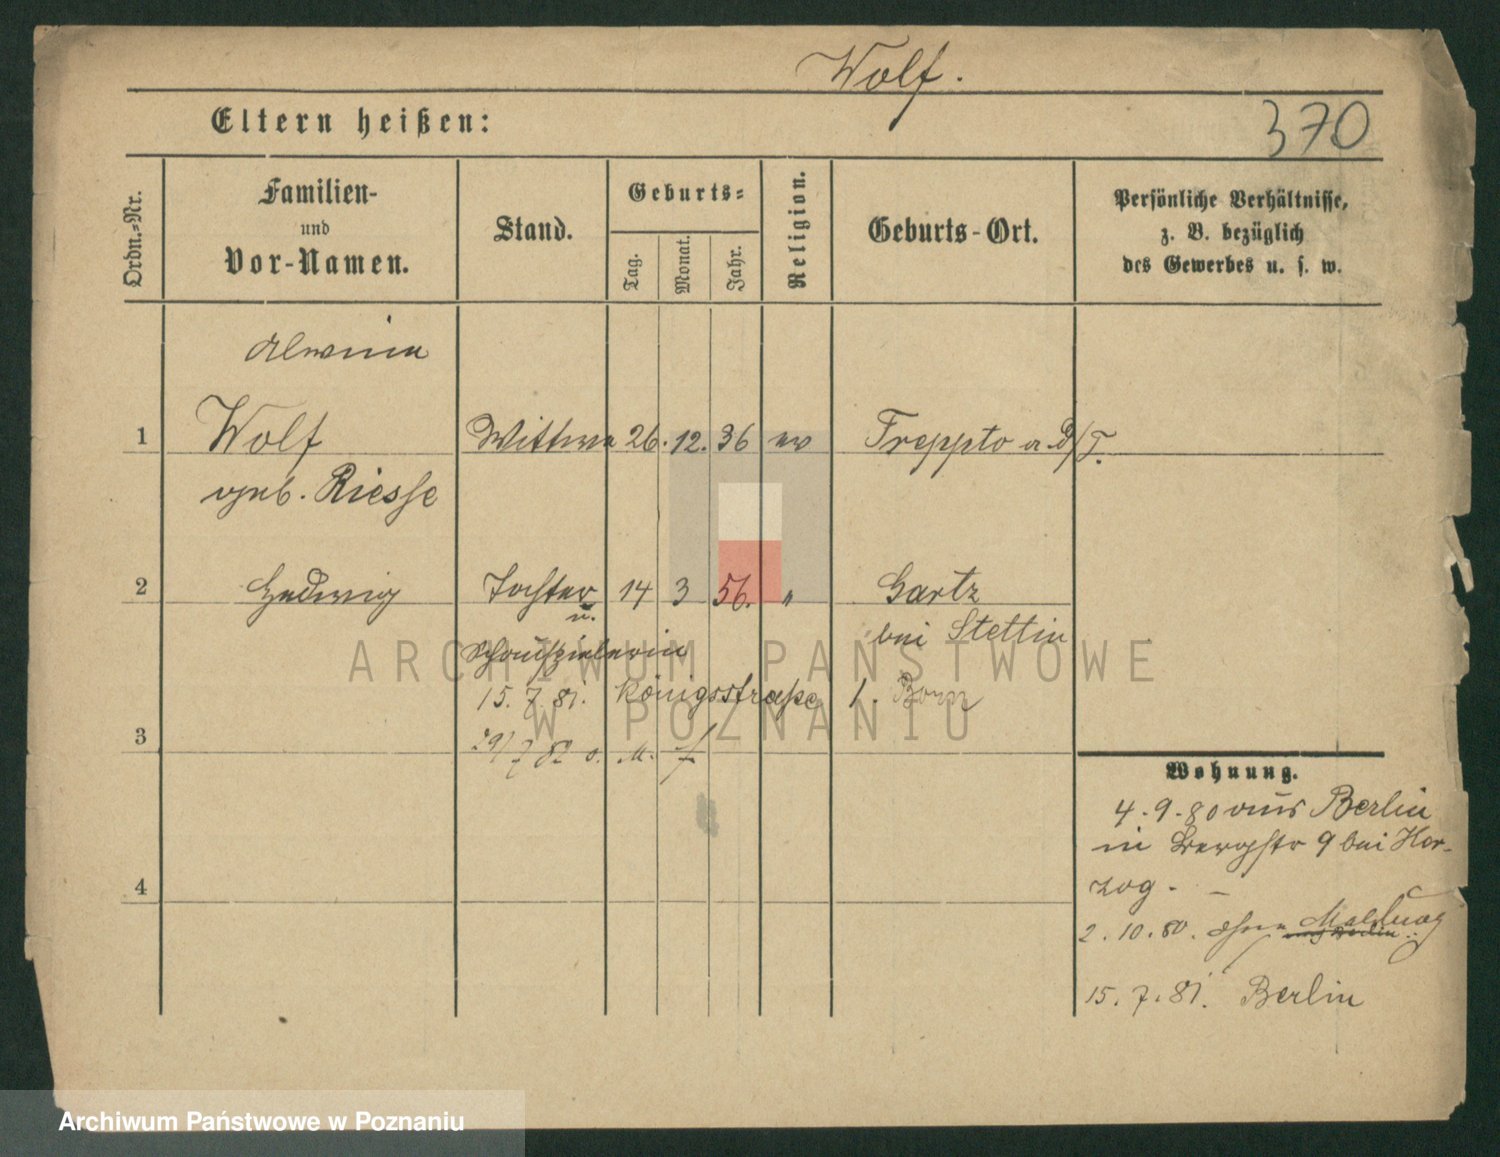 Wolf.
Eltern heißen:
370
Ordn.-Nr.
Familien-
und
Vor-Namen.
Stand.
Geburts-
Tag.
Monat.
Jahr.
Religion.
Geburts-Ort.
Persönliche Verhältnisse,
z. B. bezüglich
des Gewerbes u. s. w.
Alwina
1 Wolf Wittwe 26. 12. 36 ev Treppto a. d/T.
geb. Riesse
2 Hedwig Tochter 14 3 56. " Gartz
u. bei Stettin
Schauspielerin
15. 7. 81. Königsstraße 1.
3 29/7 82 o. M. f
4
Wohnung.
4. 9. 80 aus Berlin
in Bergstr 9 bei Her-
zog. -
2. 10. 80. ohne Meldung
15. 7. 81. Berlin
ARCHIWUM PAŃSTWOWE
W POZNANIU
Archiwum Państwowe w Poznaniu